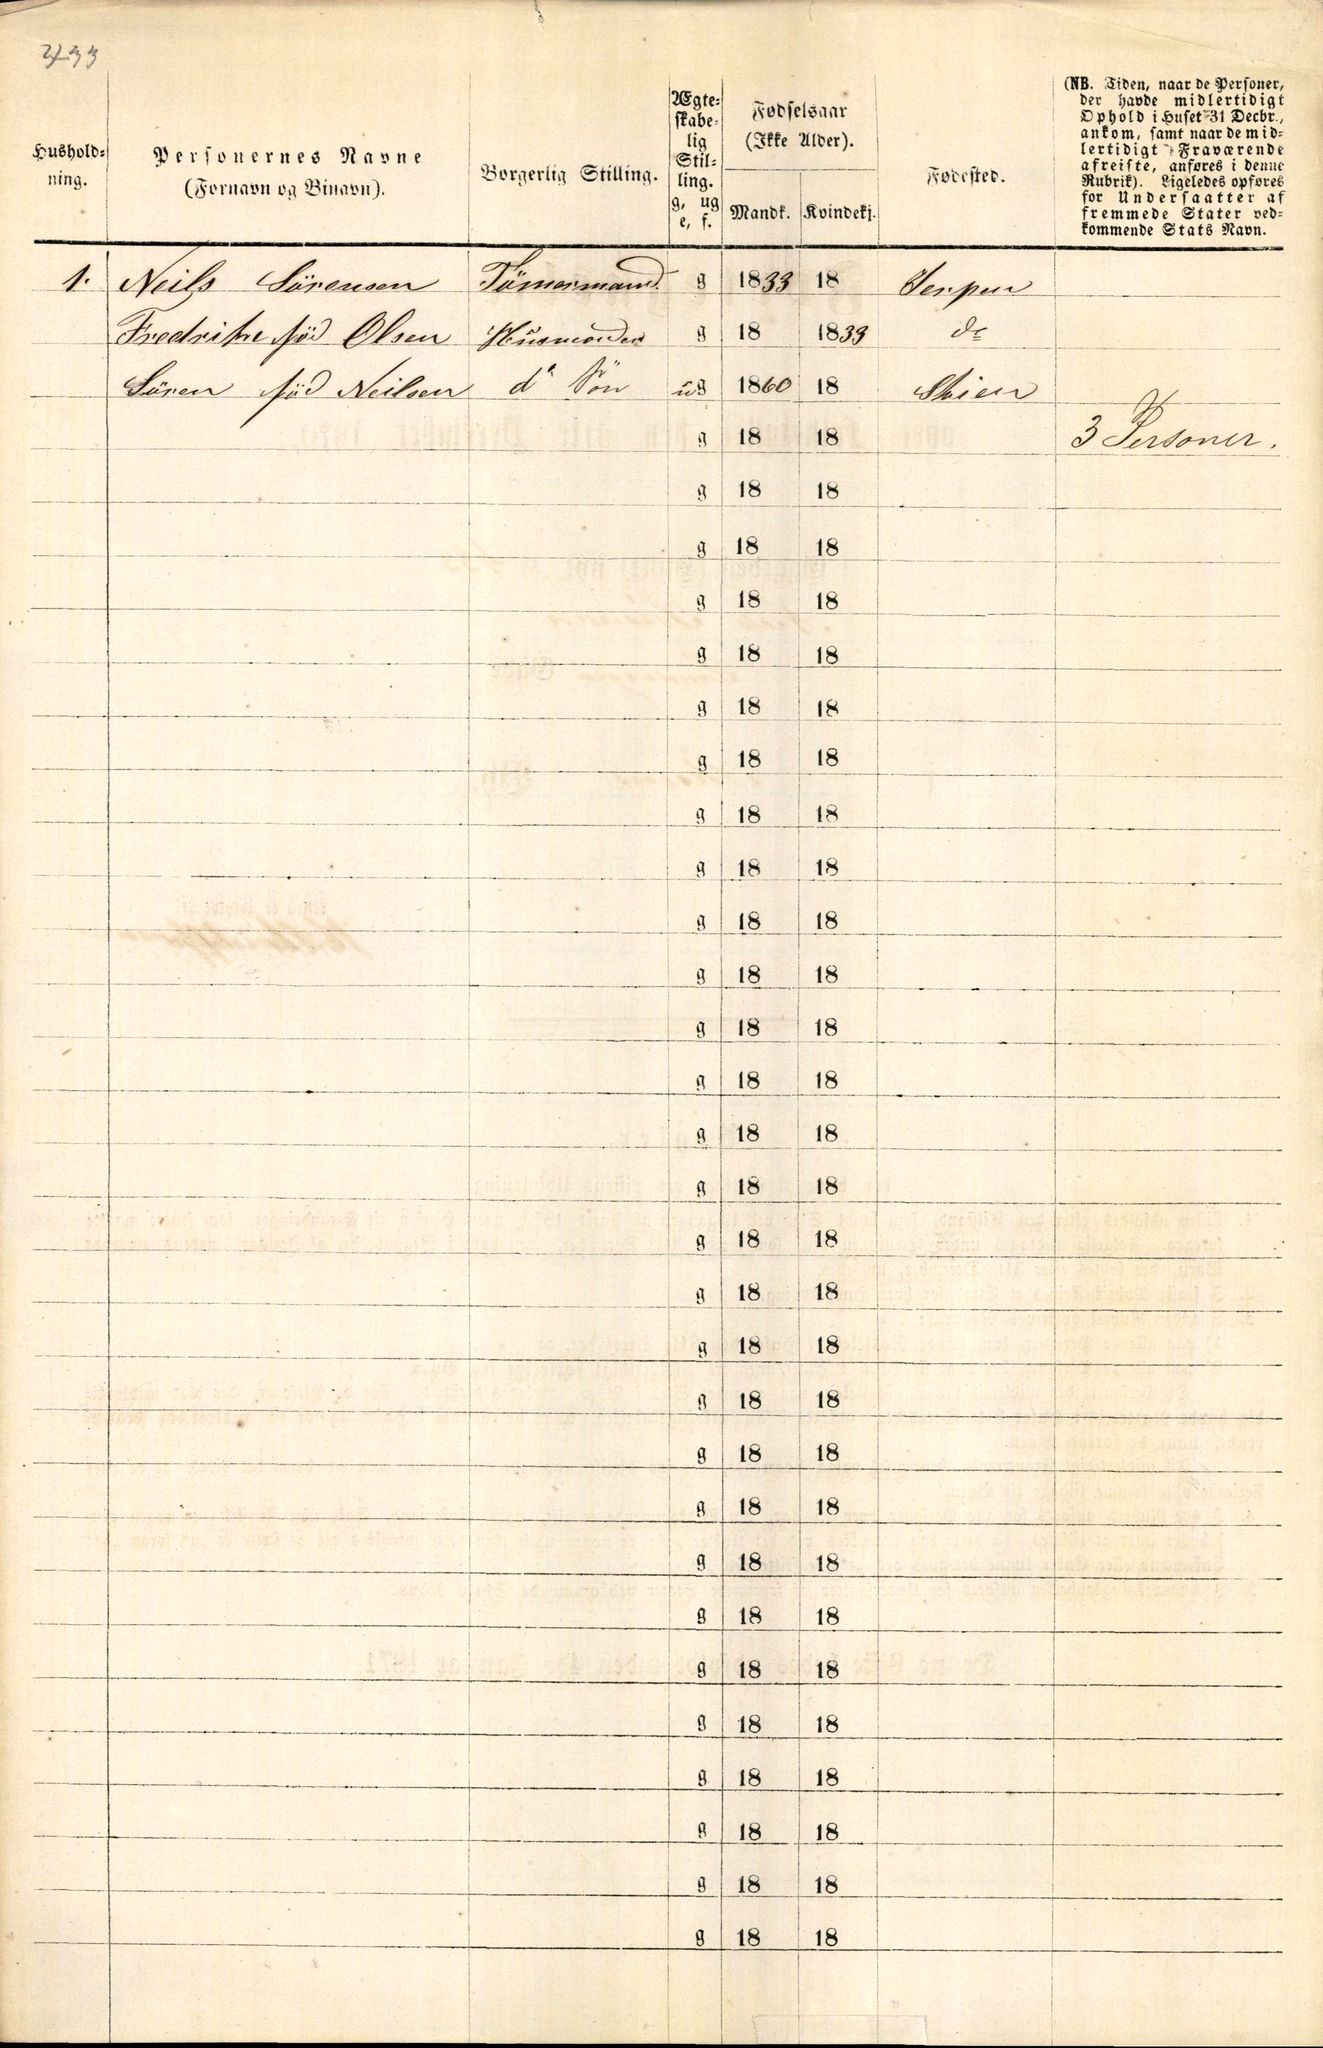 433
Hushold-
ning.
Personernes Navne
(Fornavn og Binavn).
Borgerlig Stilling.
Ægte-
skabe-
lig
Stil-
ling.
g, ug
e, f.
Fødselsaar
(Ikke Alder).
Mandk. Kvindekj.
Fødested.
(NB. Tiden, naar de Personer,
der havde midlertidigt
Ophold i Huset 31 Decbr.,
ankom, samt naar de mid-
lertidigt Fraværende
afreiste, anføres i denne
Rubrik). Ligeledes opføres
for Undersaatter af
fremmede Stater ved-
kommende Stats Navn.
1. Neils Sörensen Tömermand g 1833 18 Jerpen
Fredrikke född Olsen g 18 1833 do
Sören född Neilsen do Sön ug 1860 18 Skien
g 18 18 3 Personer.
g 18 18
g 18 18
g 18 18
g 18 18
g 18 18
g 18 18
g 18 18
g 18 18
g 18 18
g 18 18
g 18 18
g 18 18
g 18 18
g 18 18
g 18 18
g 18 18
g 18 18
g 18 18
g 18 18
g 18 18
g 18 18
g 18 18
g 18 18
g 18 18
g 18 18
g 18 18
g 18 18
g 18 18